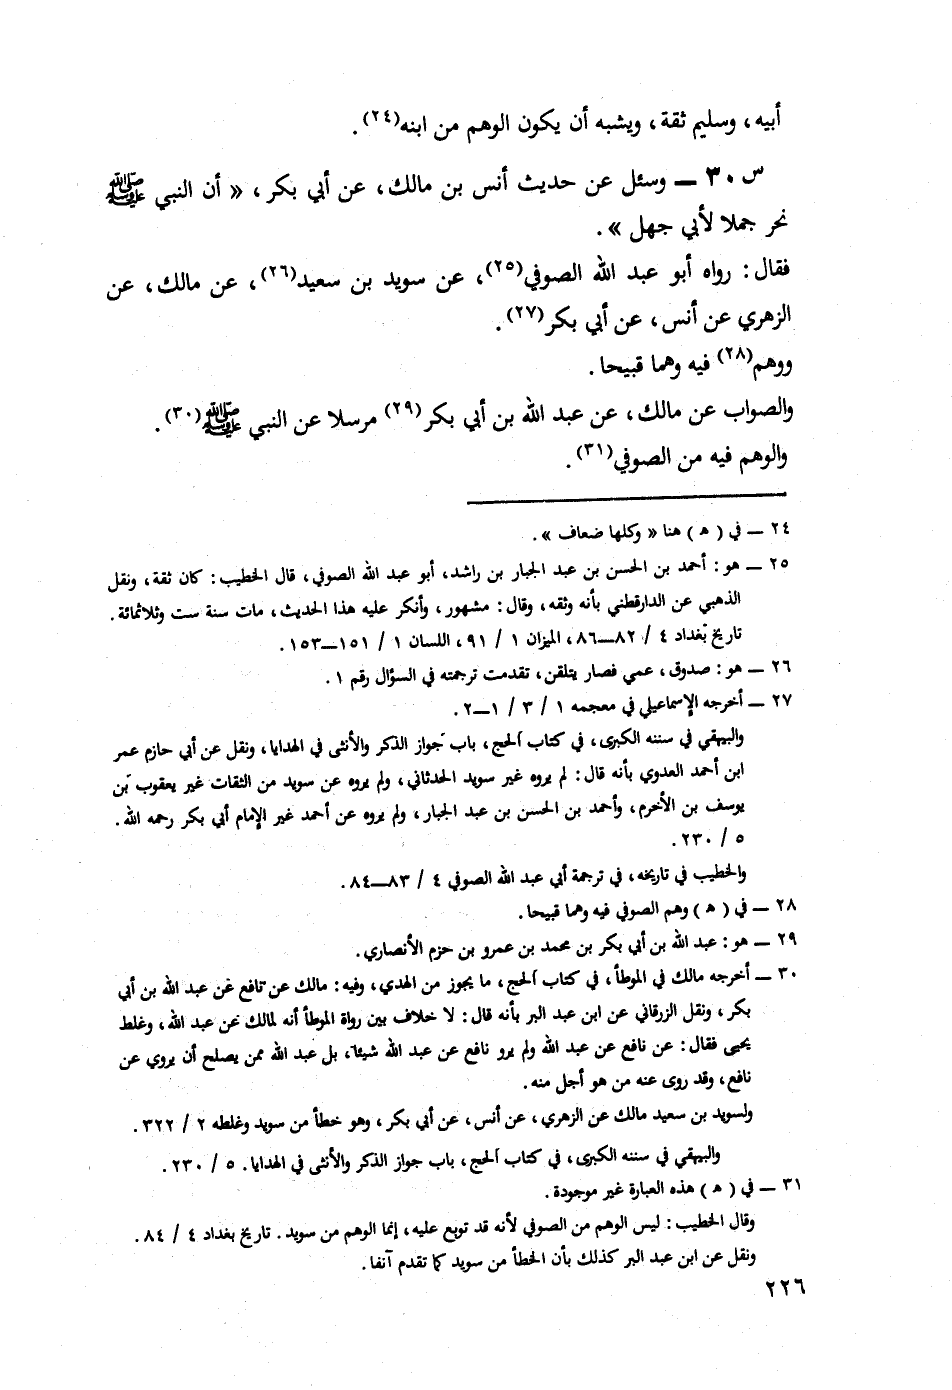 أبيه، وسليم ثقة، ويشبه أن يكون الوهم من ابنه(٢٤).
س ٣٠ ــ وسئل عن حديث أنس بن مالك، عن أبي بكر، « أن النبي ﷺ
نحر جملا لأبي جهل ».
فقال: رواه أبو عبد الله الصوفي(٢٥)، عن سويد بن سعيد(٢٦)، عن مالك، عن
الزهري عن أنس، عن أبي بكر(٢٧).
ووهم(٢٨) فيه وهما قبيحا.
والصواب عن مالك، عن عبد الله بن أبي بكر(٢٩) مرسلا عن النبي ﷺ(٣٠).
والوهم فيه من الصوفي(٣١).
٢٤ ــ في ( هـ ) هنا « وكلها ضعاف ».
٢٥ ــ هو: أحمد بن الحسن بن عبد الجبار بن راشد، أبو عبد الله الصوفي، قال الخطيب: كان ثقة، ونقل
الذهبي عن الدارقطني بأنه وثقه، وقال: مشهور، وأنكر عليه هذا الحديث، مات سنة ست وثلاثمائة.
تاريخ بغداد ٤ / ٨٢ــ٨٦، الميزان ١ / ٩١، اللسان ١ / ١٥١ــ١٥٣.
٢٦ ــ هو: صدوق، عمي فصار يتلقن، تقدمت ترجمته في السؤال رقم ١.
٢٧ ــ أخرجه الإسماعيلي في معجمه ١ / ٣ / ١ــ٢.
والبيهقي في سننه الكبرى، في كتاب الحج، باب جواز الذكر والأنثى في الهدايا، ونقل عن أبي حازم عمر
ابن أحمد العدوي بأنه قال: لم يروه غير سويد الحدثاني، ولم يروه عن سويد من الثقات غير يعقوب بن
يوسف بن الأخرم، وأحمد بن الحسن بن عبد الجبار، ولم يروه عن أحمد غير الإمام أبي بكر رحمه الله.
٥ / ٢٣٠.
والخطيب في تاريخه، في ترجمة أبي عبد الله الصوفي ٤ / ٨٣ــ٨٤.
٢٨ ــ في ( هـ ) وهم الصوفي فيه وهما قبيحا.
٢٩ ــ هو: عبد الله بن أبي بكر بن محمد بن عمرو بن حزم الأنصاري.
٣٠ ــ أخرجه مالك في الموطأ، في كتاب الحج، ما يجوز من الهدي، وفيه: مالك عن نافع عن عبد الله بن أبي
بكر، ونقل الزرقاني عن ابن عبد البر بأنه قال: لا خلاف بين رواة الموطأ أنه لمالك عن عبد الله، وغلط
يحيى فقال: عن نافع عن عبد الله ولم يرو نافع عن عبد الله شيئا، بل عبد الله ممن يصلح أن يروي عن
نافع، وقد روى عنه من هو أجل منه.
ولسويد بن سعيد مالك عن الزهري، عن أنس، عن أبي بكر، وهو خطأ من سويد وغلطه ٢ / ٣٢٢.
والبيهقي في سننه الكبرى، في كتاب الحج، باب جواز الذكر والأنثى في الهدايا. ٥ / ٢٣٠.
٣١ ــ في ( هـ ) هذه العبارة غير موجودة.
وقال الخطيب: ليس الوهم من الصوفي لأنه قد توبع عليه، إنما الوهم من سويد. تاريخ بغداد ٤ / ٨٤.
ونقل عن ابن عبد البر كذلك بأن الخطأ من سويد كما تقدم آنفا.
٢٢٦